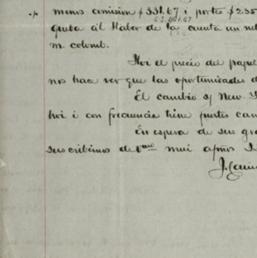 menos comision $331.67 i porte $2.35
queda al Haber de la cuenta un
m colomb.
Por el precio del papel
nos hace ver que las oportunidades d
El cambio s/ New
hoi i con frecuencia tiene partes
En espera de sus gra
suscribimos de mui afmos